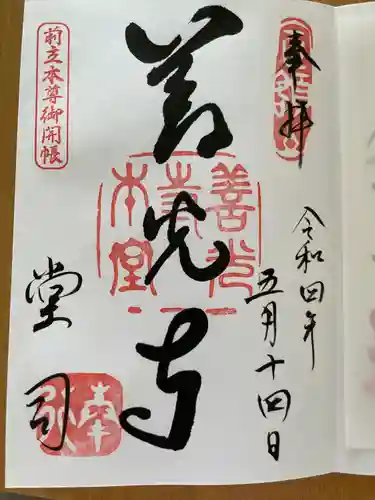 奉拝
令和四年
五月十四日
善光寺
善光寺本堂
前立本尊御開帳
堂司